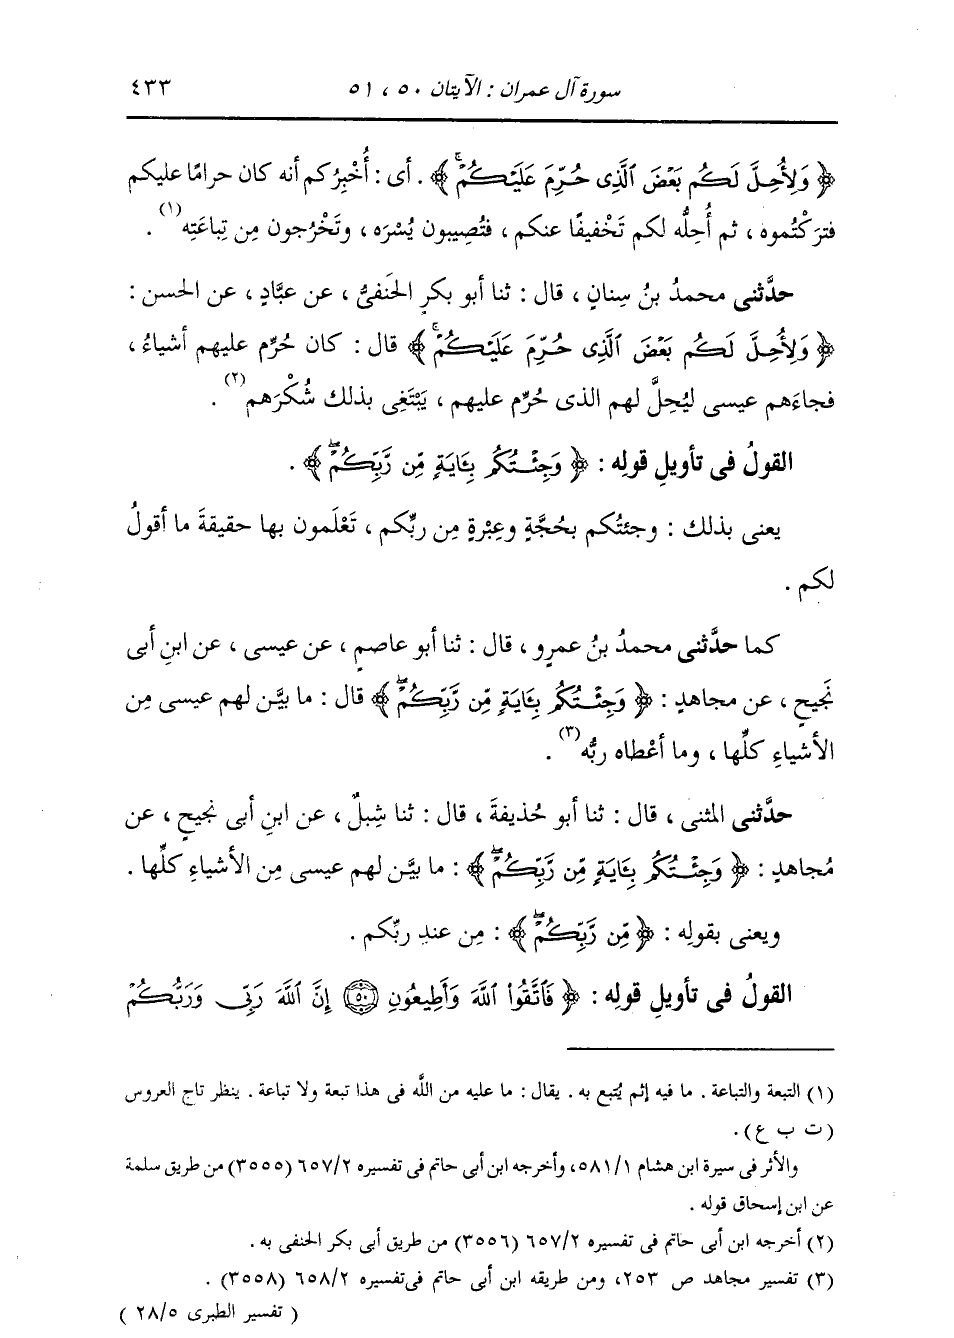 سورة آل عمران : الآيتان ٥٠ ، ٥١ ٤٣٣
﴿ وَلِأُحِلَّ لَكُم بَعْضَ ٱلَّذِى حُرِّمَ عَلَيْكُمْ ﴾ . أى : أُخْبِرُكم أنه كان حرامًا عليكم
فتركْتُموه ، ثم أُحِلُّه لكم تَخْفيفًا عنكم ، فتُصِيبون يُسْرَه ، وتَخْرُجون مِن تِباعَتِه(١) .
حدَّثنى محمدُ بنُ سِنانٍ ، قال : ثنا أبو بكرٍ الحَنفىُّ ، عن عبَّادٍ ، عن الحسنِ :
﴿ وَلِأُحِلَّ لَكُم بَعْضَ ٱلَّذِى حُرِّمَ عَلَيْكُمْ ﴾ قال : كان حُرِّم عليهم أشياءُ ،
فجاءَهم عيسى ليُحِلَّ لهم الذى حُرِّم عليهم ، يَبْتَغِى بذلك شُكْرَهم(٢) .
القولُ فى تأويلِ قولِه : ﴿ وَجِئْتُكُم بِـَٔايَةٍ مِّن رَّبِّكُمْ ﴾ .
يعنى بذلك : وجئتُكم بحُجَّةٍ وعِبْرةٍ مِن ربِّكم ، تَعْلَمون بها حقيقةَ ما أقولُ
لكم .
كما حدَّثنى محمدُ بنُ عمرٍو ، قال : ثنا أبو عاصمٍ ، عن عيسى ، عن ابنِ أبى
نَجيحٍ ، عن مجاهدٍ : ﴿ وَجِئْتُكُم بِـَٔايَةٍ مِّن رَّبِّكُمْ ﴾ قال : ما بيَّن لهم عيسى مِن
الأشياءِ كلِّها ، وما أعْطاه ربُّه(٣) .
حدَّثنى المثنى ، قال : ثنا أبو حُذيفةَ ، قال : ثنا شِبلٌ ، عن ابنِ أبى نجيحٍ ، عن
مُجاهدٍ : ﴿ وَجِئْتُكُم بِـَٔايَةٍ مِّن رَّبِّكُمْ ﴾ : ما بيَّن لهم عيسى مِن الأشياءِ كلِّها .
ويعنى بقولِه : ﴿ مِّن رَّبِّكُمْ ﴾ : مِن عندِ ربِّكم .
القولُ فى تأويلِ قولِه : ﴿ فَٱتَّقُوا۟ ٱللَّهَ وَأَطِيعُونِ ۝٥٠ إِنَّ ٱللَّهَ رَبِّى وَرَبُّكُمْ
(١) التبعة والتباعة . ما فيه إثم يُتبع به . يقال : ما عليه من اللَّه فى هذا تبعة ولا تباعة . ينظر تاج العروس
(ت ب ع) .
والأثر فى سيرة ابن هشام ٥٨١/١، وأخرجه ابن أبى حاتم فى تفسيره ٦٥٧/٢ (٣٥٥٥) من طريق سلمة
عن ابن إسحاق قوله .
(٢) أخرجه ابن أبى حاتم فى تفسيره ٦٥٧/٢ (٣٥٥٦) من طريق أبى بكر الحنفى به .
(٣) تفسير مجاهد ص ٢٥٣، ومن طريقه ابن أبى حاتم فى تفسيره ٦٥٨/٢ (٣٥٥٨) .
( تفسير الطبرى ٢٨/٥ )